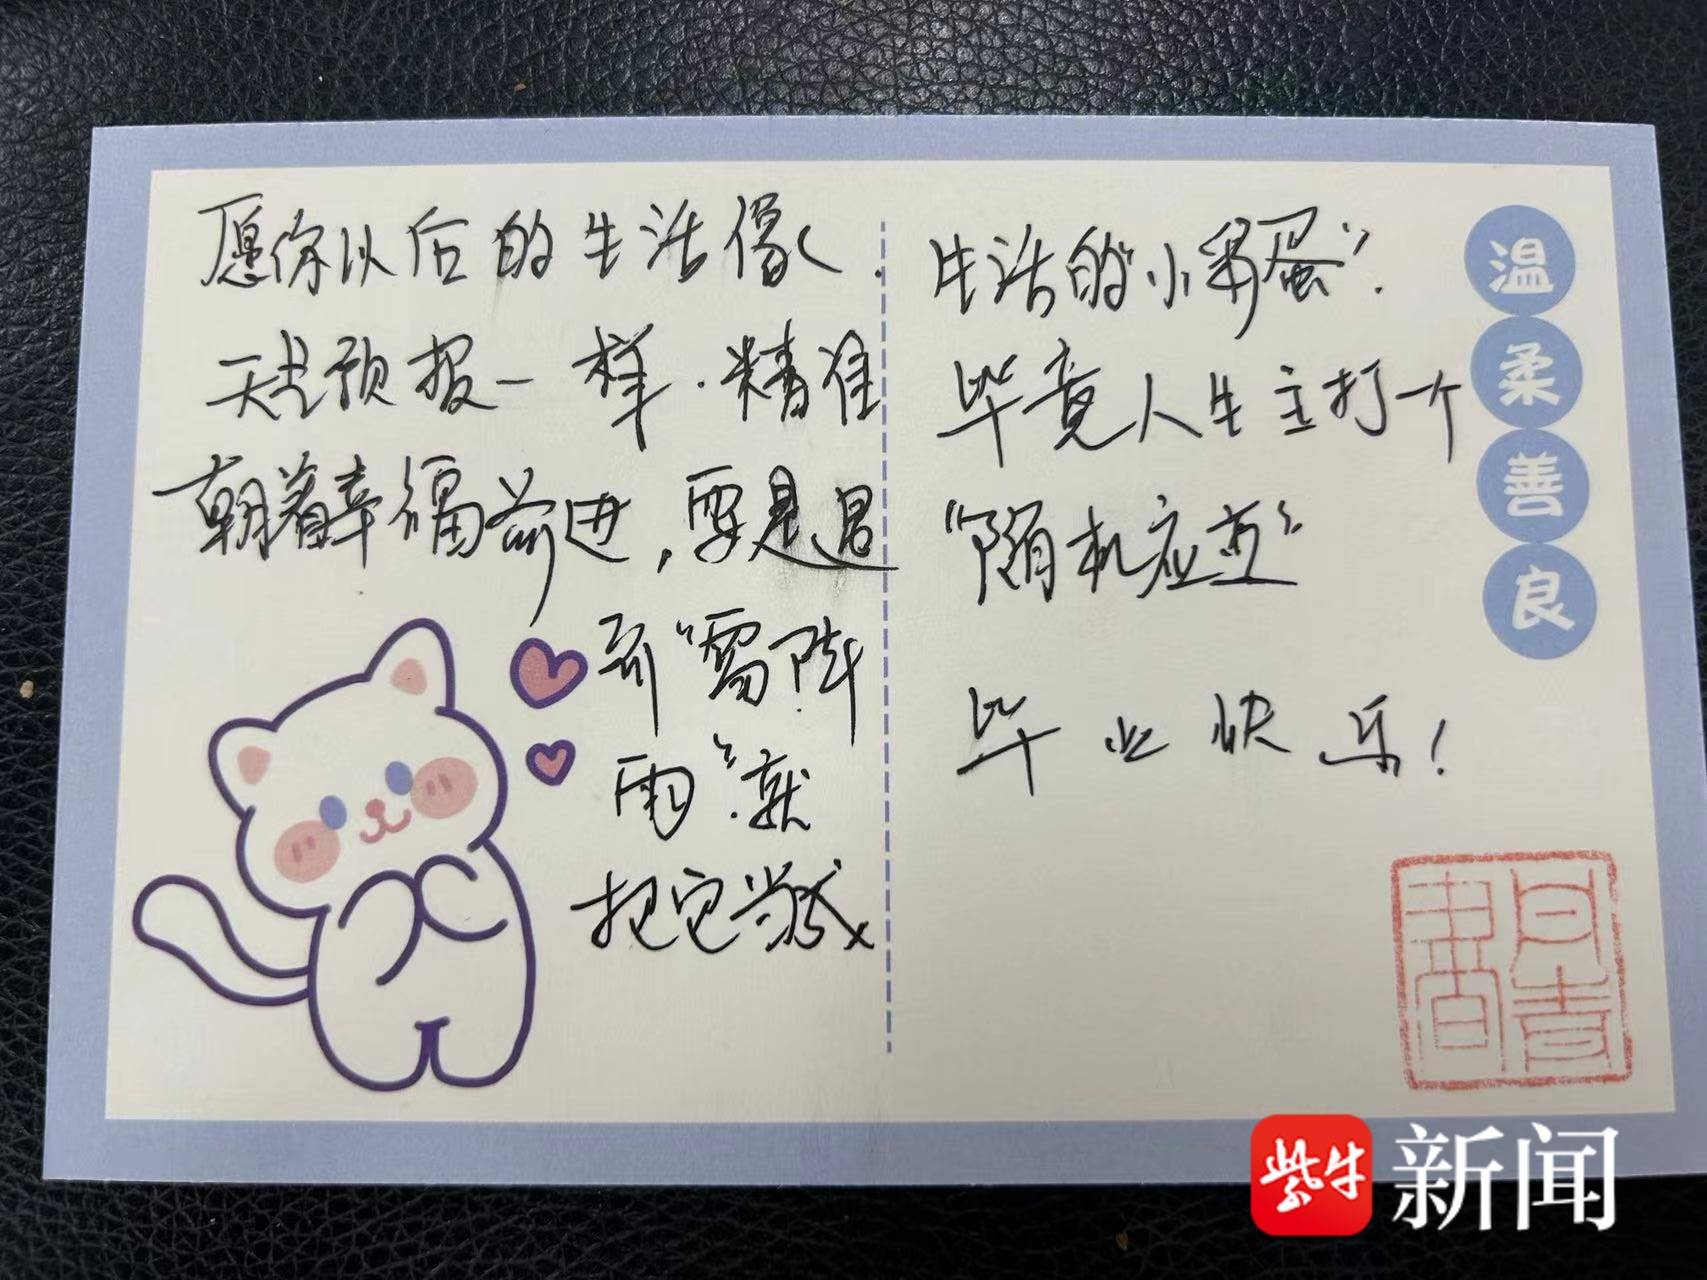 愿你以后的生活像
天气预报一样.精准
朝着幸福前进,要是遇
到“雷阵
雨”.就
把它当成
生活的“小彩蛋”.
毕竟人生主打一个
“随机应变”
毕业快乐!
温柔善良
紫牛新闻